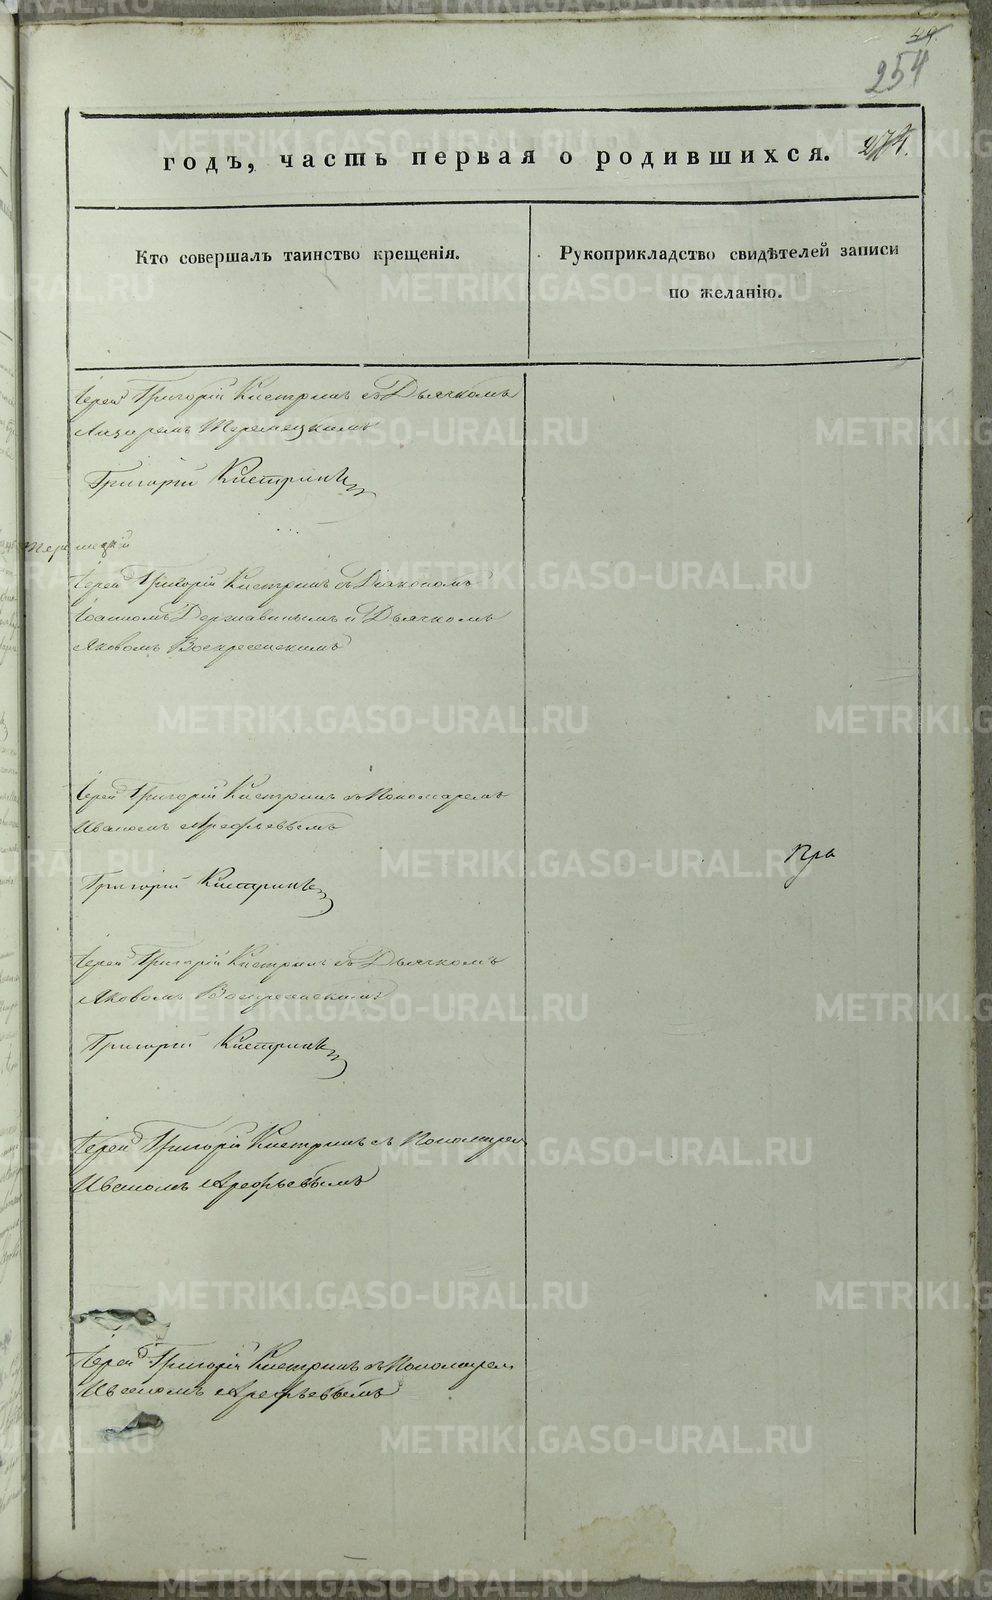 254
годъ, часть первая о родившихся.
Кто совершалъ таинство крещенія.
Рукоприкладство свидѣтелей записи
по желанію.
Іерей Григорій Кистринъ съ Дьячкомъ
Григорій Кистринъ
Іерей Григорій Кистринъ съ Діакономъ
Іоанномъ Державинымъ и Дьячкомъ
Яковомъ Воскресенскимъ
Іерей Григорій Кистринъ съ Пономаремъ
Иваномъ Арефьевымъ
Григорій Кистринъ
Іерей Григорій Кистринъ съ Дьячкомъ
Яковомъ Воскресенскимъ
Григорій Кистринъ
Іерей Григорій Кистринъ съ Пономарем
Иваномъ Арефьевымъ
Іерей Григорій Кистринъ съ Пономарем
Иваномъ Арефьевымъ
METRIKI.GASO-URAL.RU